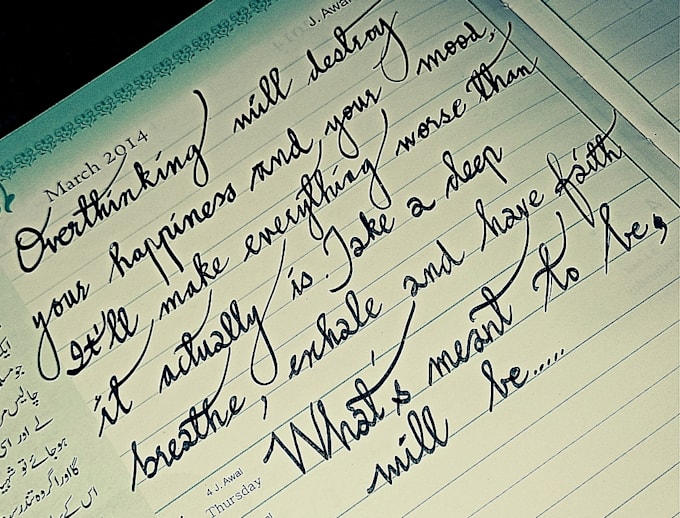 J. Awal
March 2014
Overthinking will destroy
your happiness and your mood,
It'll make everything worse than
it actually is. Take a deep
breathe, exhale and have faith
What's meant to be,
will be.....
4 J. Awal
Thursday
چالیس
لے اور
ہو جائے تو
اس کے